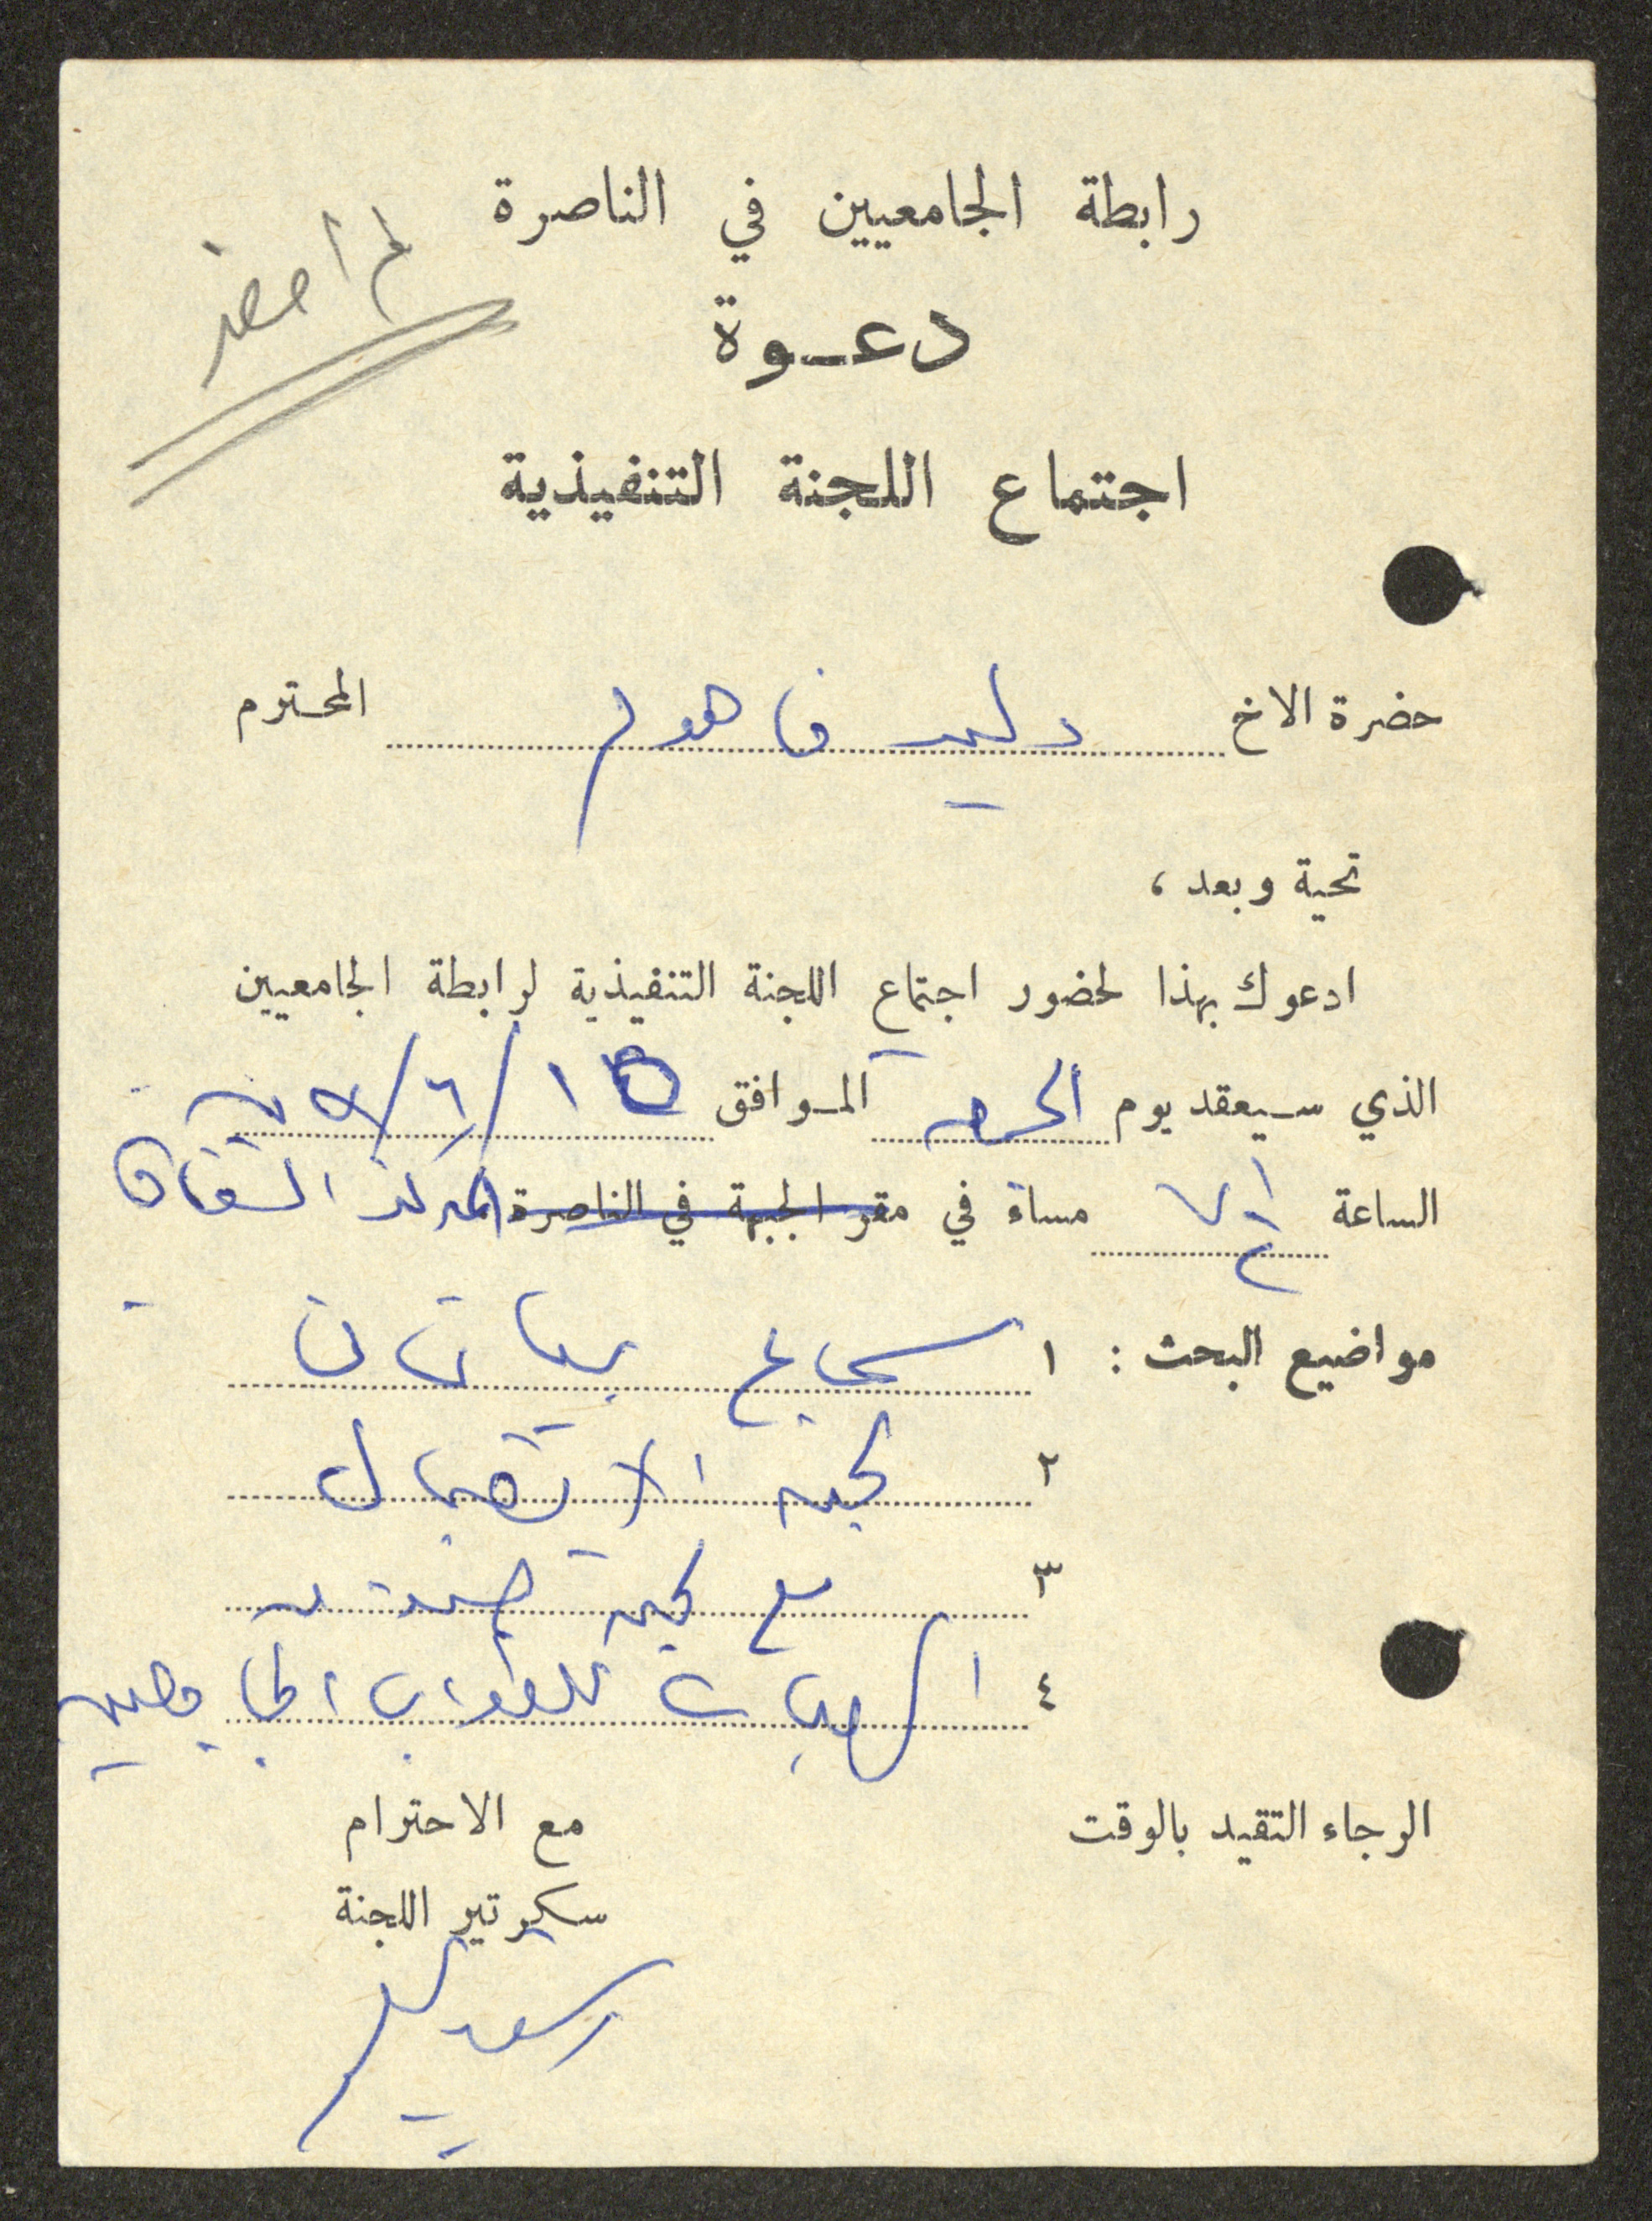 رابطة الجامعيين في الناصرة
لم احضر
دعـوة
اجتماع اللجنة التنفيذية
حضرة الاخ وليد فاهوم المحترم
تحية وبعد،
ادعوك بهذا لحضور اجتماع اللجنة التنفيذية لرابطة الجامعيين
الذي سيعقد يوم الجمعة الموافق
الساعة ٧ مساءً في مقر الجبهة في الناصرة المركز الثقافي
مواضيع البحث : ١ سماع بيان من
٢ لجنة الاتصال
٣ مع لجنة صندوق
٤ الهبات للطلاب الجامعيين
الرجاء التقيد بالوقت
مع الاحترام
سكرتير اللجنة